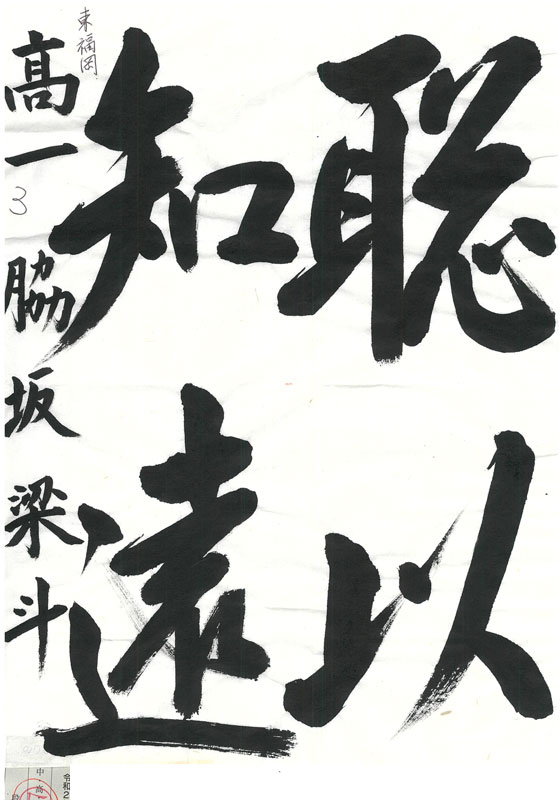 聡以
知遠
東福岡
高一 3 脇坂梁斗
令和2
中高